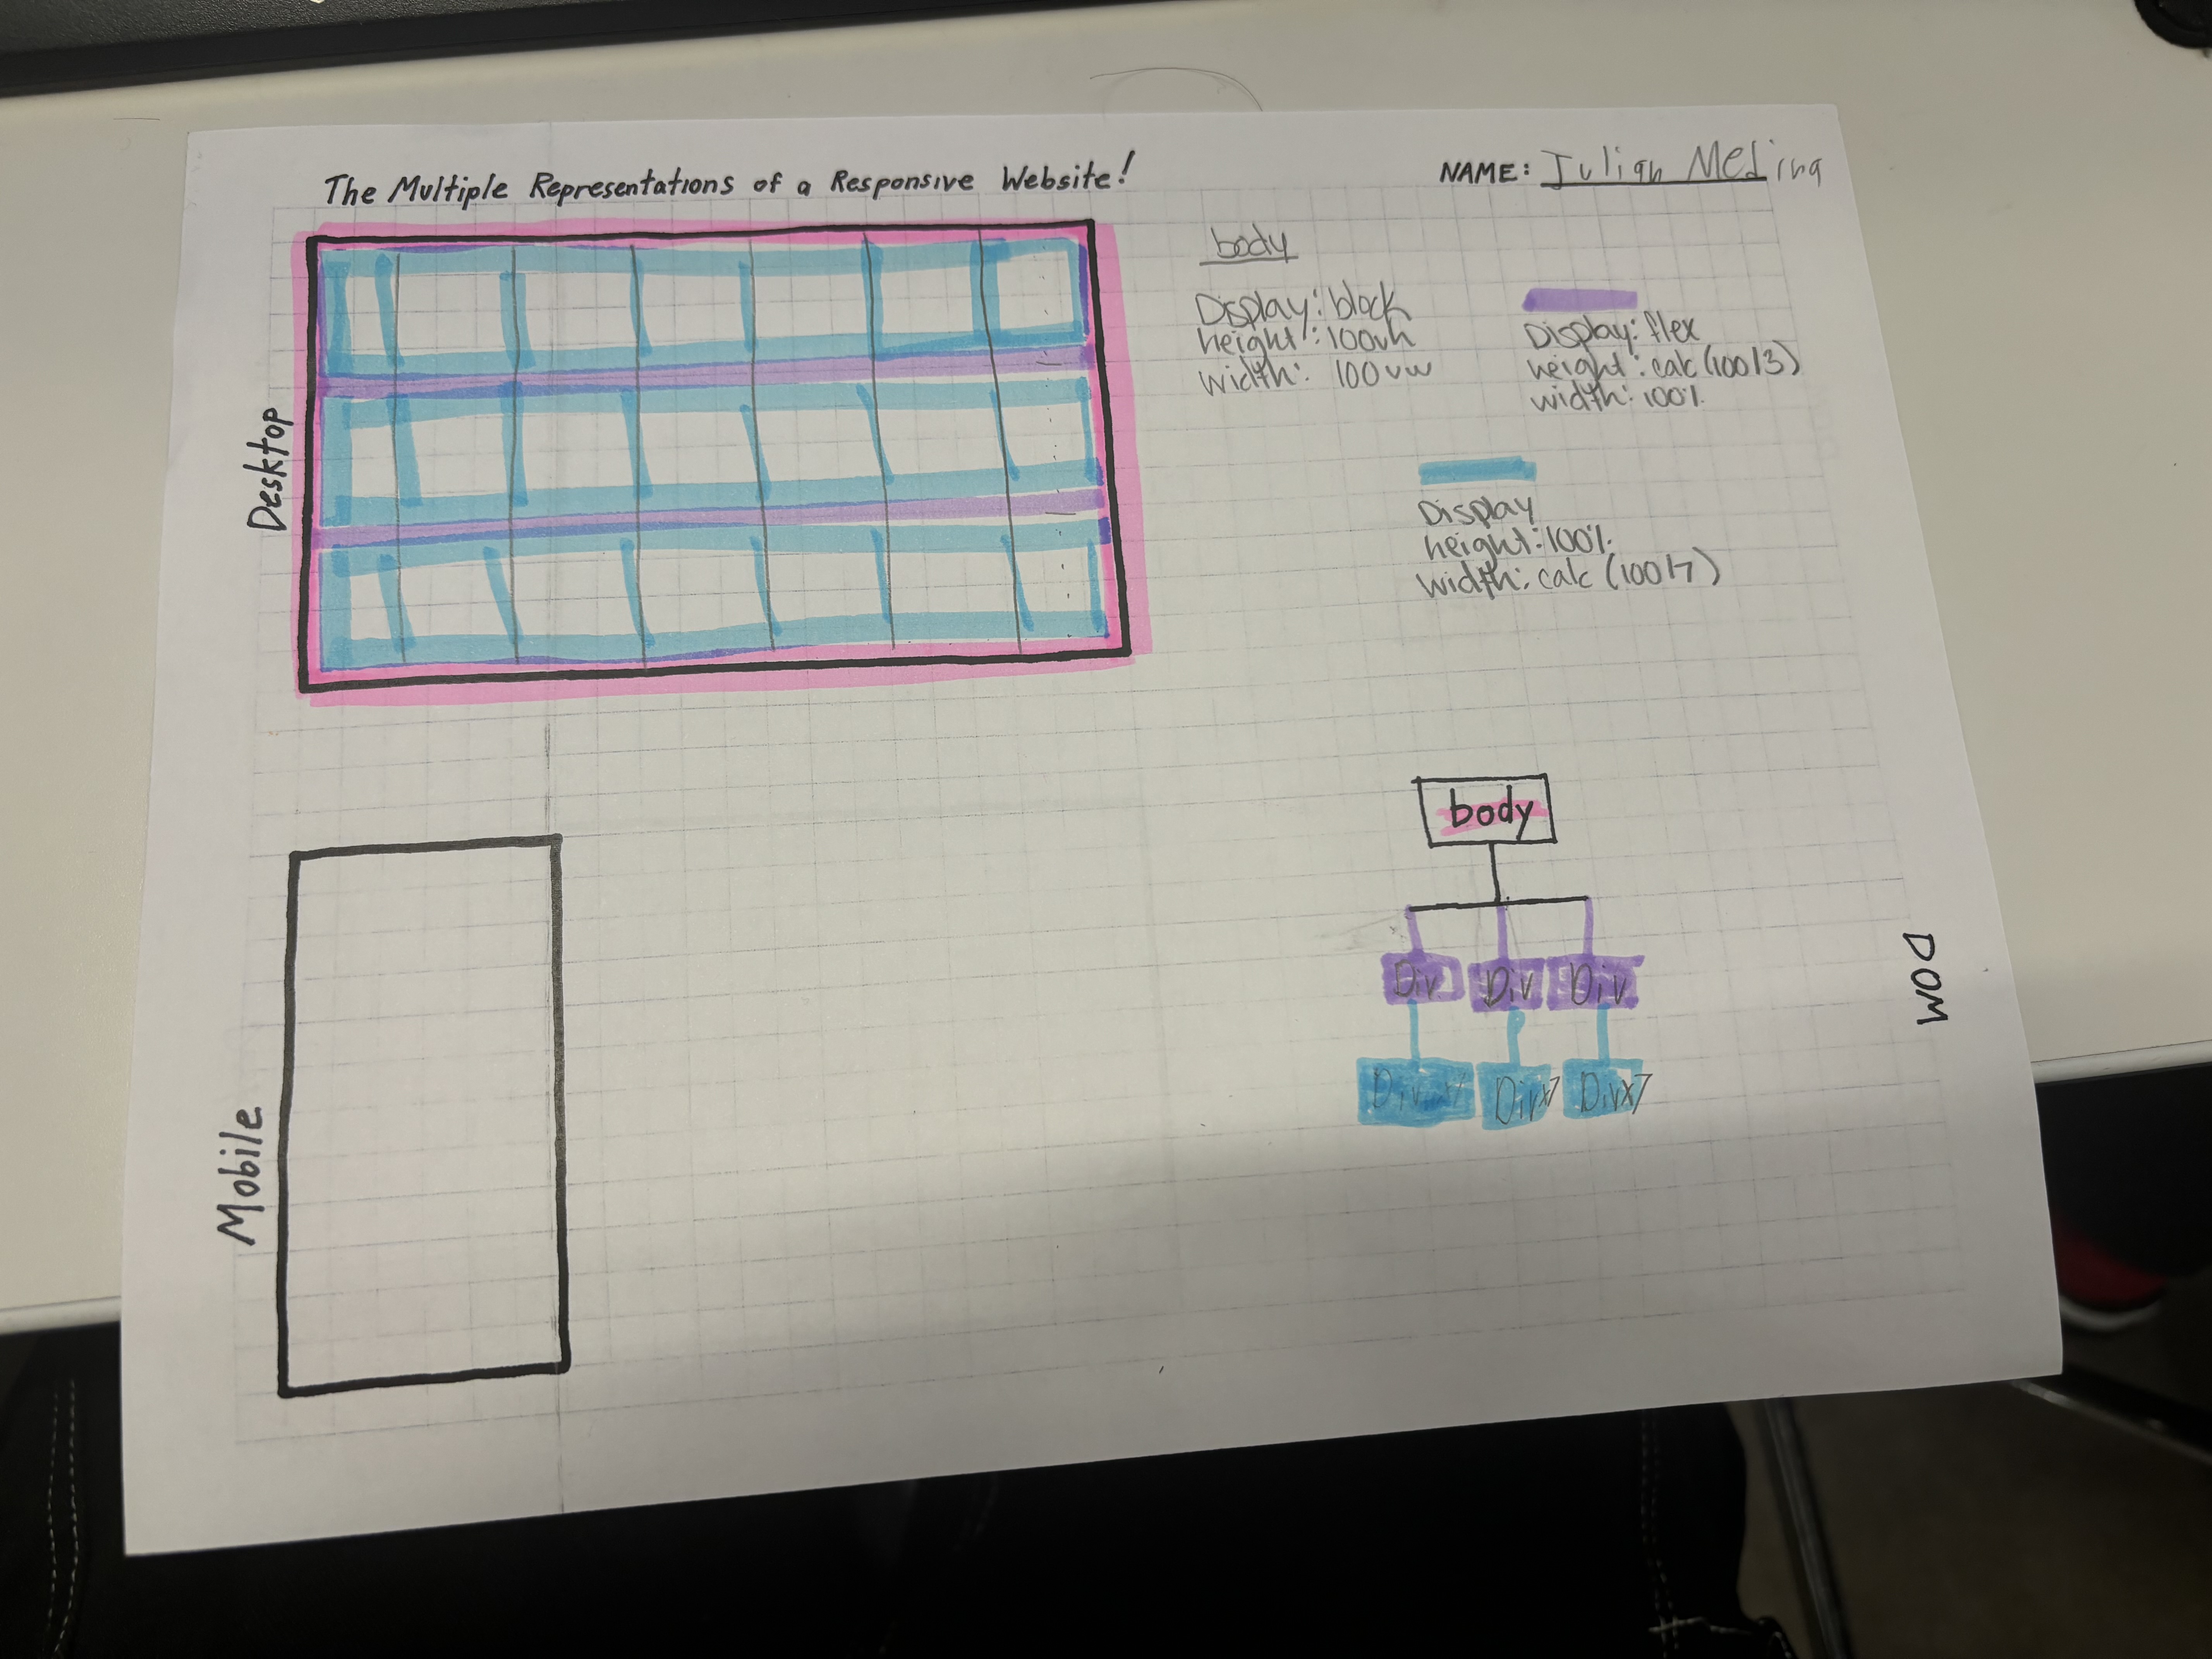 The Multiple Representations of a Responsive Website!
NAME: Julian Medina
Desktop
body
Display: block
height: 100vh
width: 100vw
Display: flex
height: calc(100/3)
width: 100%
Display
height: 100%
width: calc(100/7)
Mobile
body
Div Div Div
Divx7 Divx7 Divx7
DOM